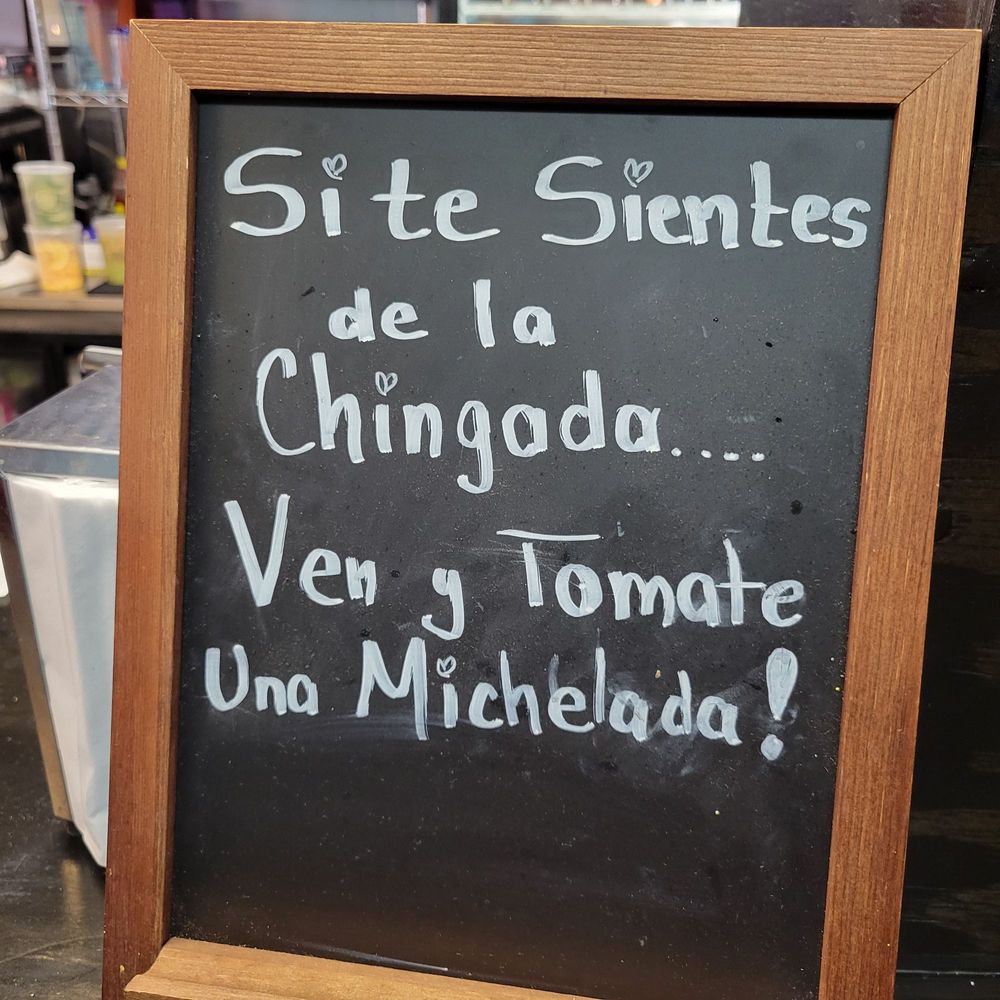 Si te Sientes
de la
Chingada.....
Ven y Tomate
Una Michelada!